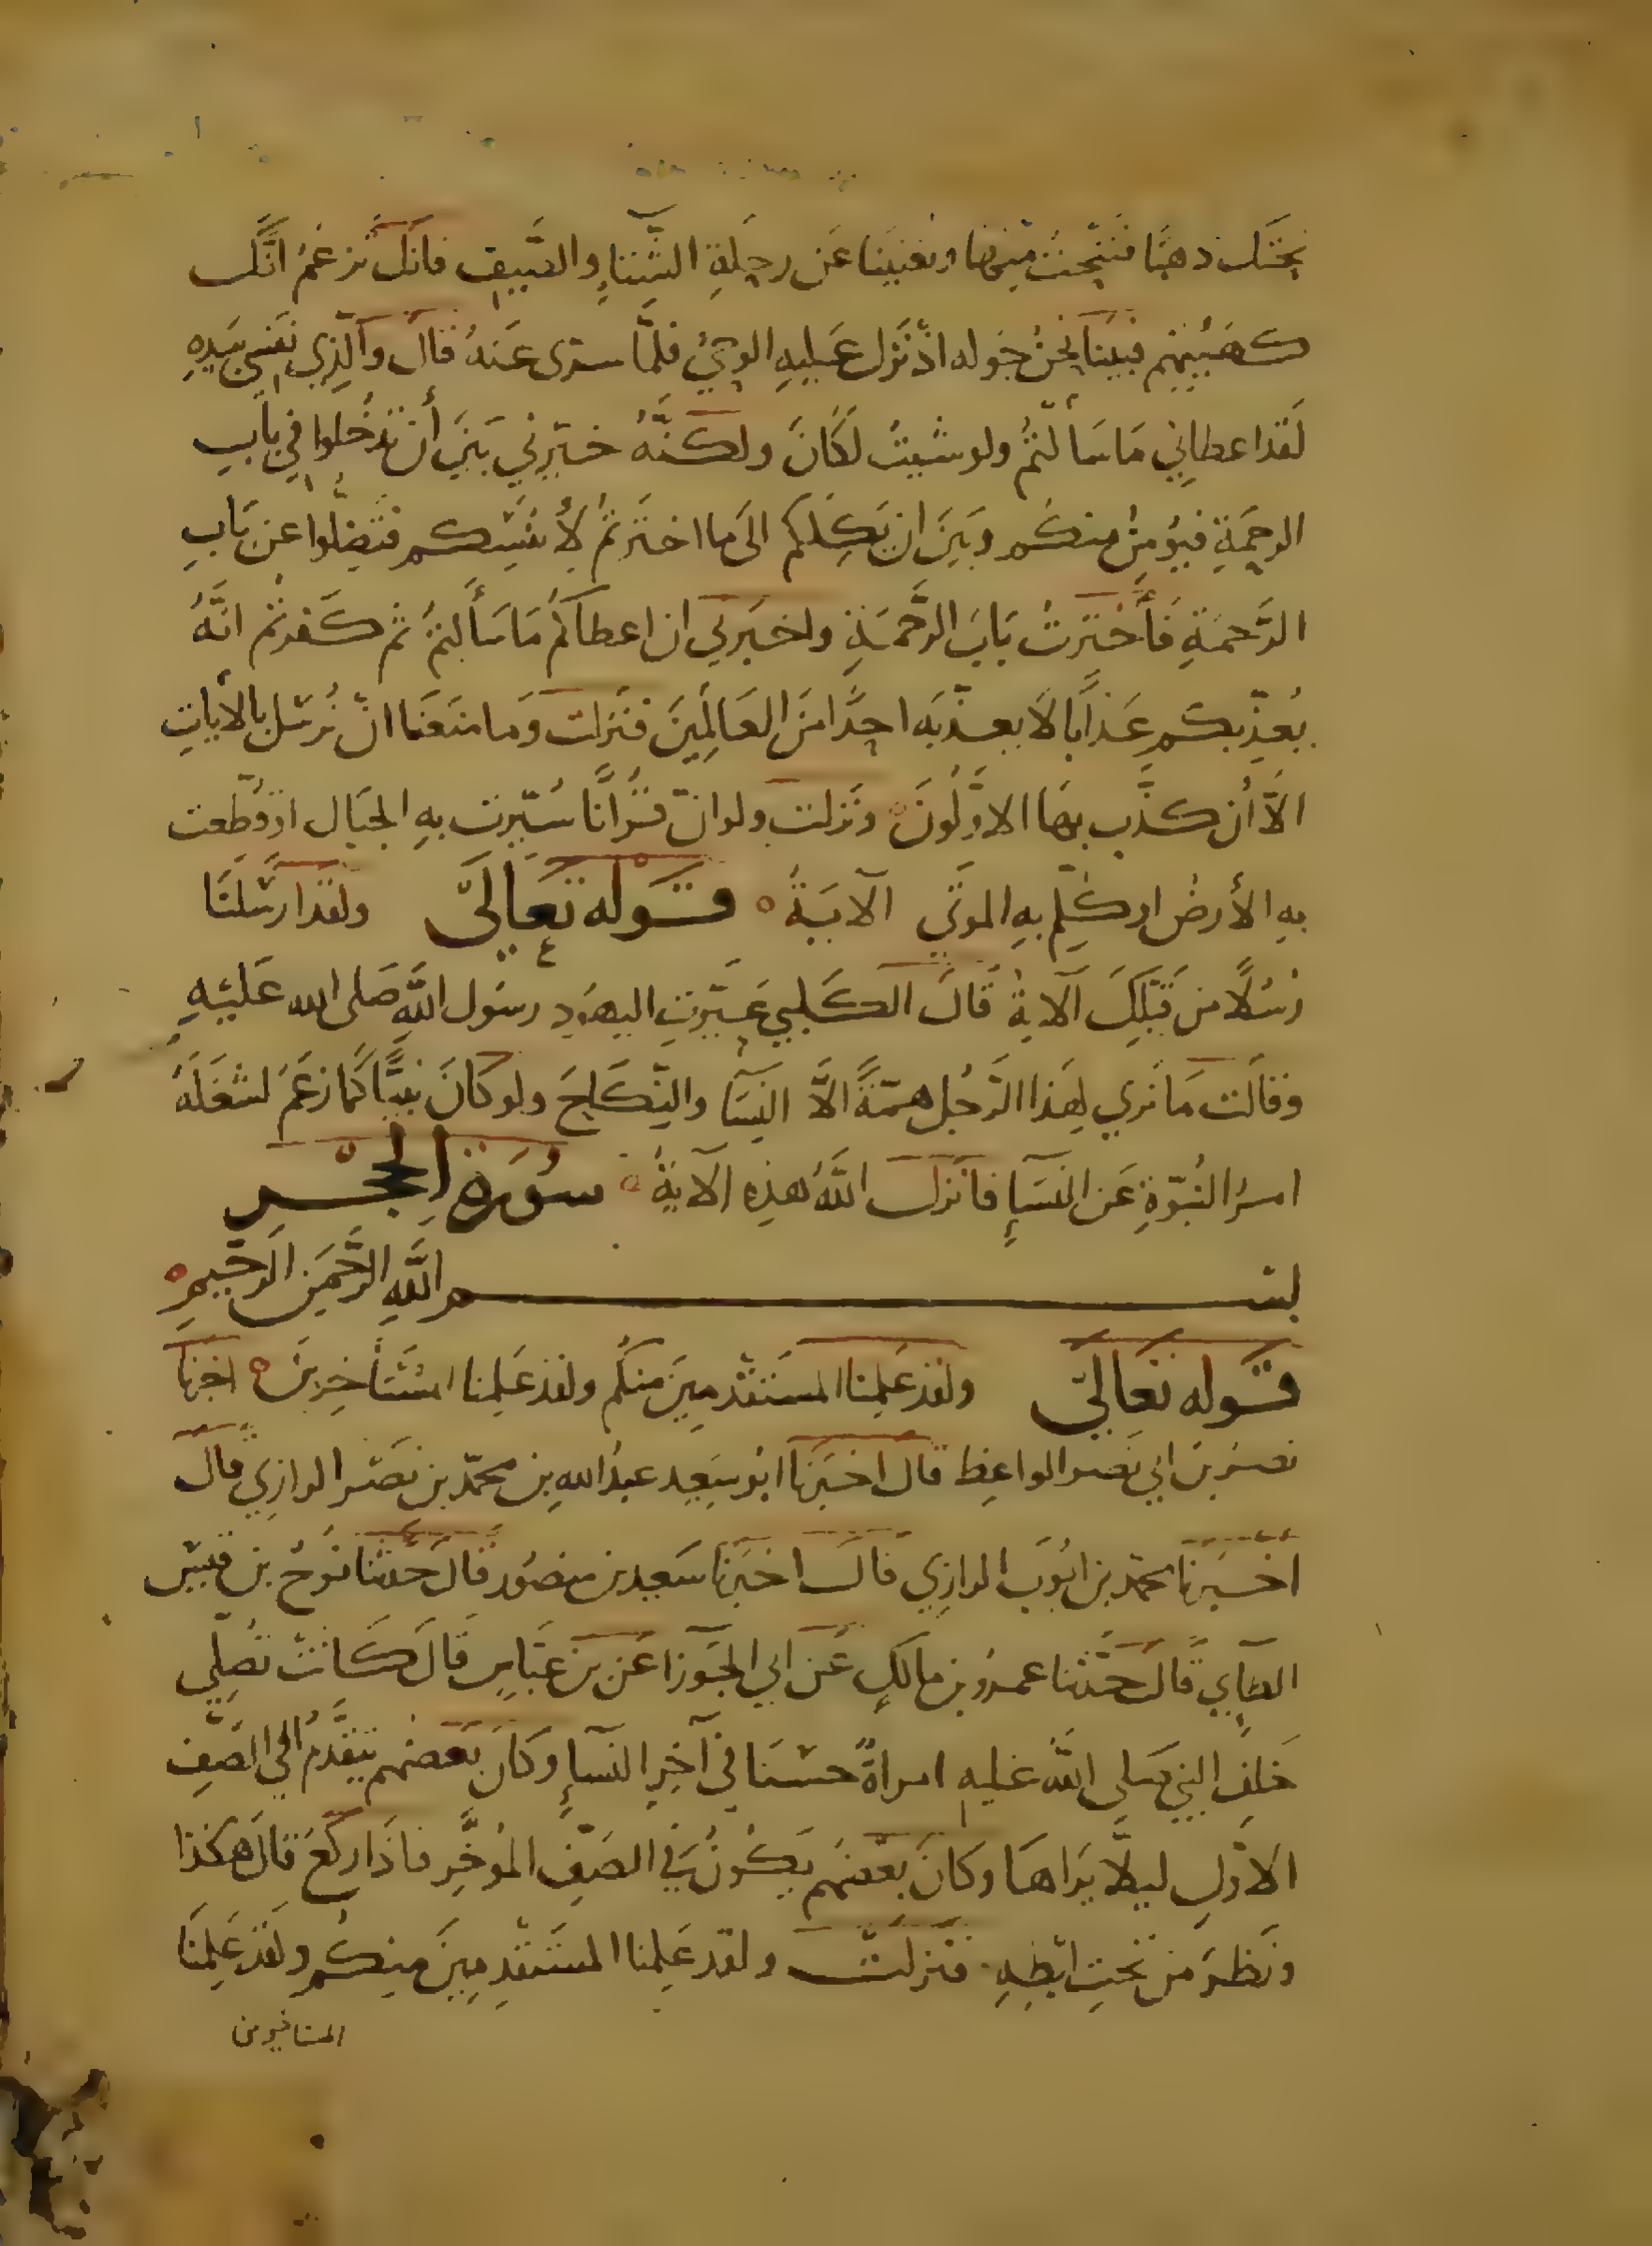 تحتك ذهبًا فننحت منها وتغنينا عن رحلة الشتاء والصيف فانك تزعم انك
كهيئتهم فبينا نحن حوله اذ نزل عليه الوحي فلما سري عنه قال والذي نفسي بيده
لقد اعطاني ما سألتم ولو شيت لكان ولكنه خيرني بين أن تدخلوا في باب
الرحمة فيؤمن منكم وبين ان يكلكم الى ما اخترتم لأنفسكم فتضلوا عن باب
الرحمة فأخترت باب الرحمة واخبرني ان اعطاكم ما سألتم ثم كفرتم انه
يعذبكم عذابا لا يعذبه احدًا من العالمين فنزلت وما منعنا ان نرسل بالايات
الا أن كذب بها الاولون ونزلت ولو ان قرانًا سيرت به الجبال او قطعت
به الأرض او كلم به الموتي الآية قوله تعالى ولقد ارسلنا
رسلًا من قبلك الآية قال الكلبي عيرت اليهود رسول الله صلى الله عليه
وقالت ما نري لهذا الرجل همة الا النسا والنكاح ولو كان نبيًا كما زعم لشغله
امر النبوة عن النساء فانزل الله هذه الآية سورة الحجر
بسم الله الرحمن الرحيم
قوله تعالى ولقد علمنا المستقدمين منكم ولقد علمنا المستأخرين اخبرنا
نصر بن ابي نصر الواعظ قال اخبرنا ابو سعيد عبد الله بن محمد بن نصر الرازي قال
اخبرنا محمد بن ايوب الرازي قال اخبرنا سعيد بن منصور قال حدثنا نوح بن قيس
الطايي قال حدثنا عمرو بن مالك عن ابي الجوزا عن بن عباس قال كانت تصلي
خلف النبي صلي الله عليه امراة حسنا في آخر النساء وكان بعضهم يتقدم الي الصف
الاول ليلا يراها وكان بعضهم يكون في الصف المؤخر فاذا ركع قال هكذا
ونظر من تحت ابطه فنزلت ولقد علمنا المستقدمين منكم ولقد علمنا
المستاخرين